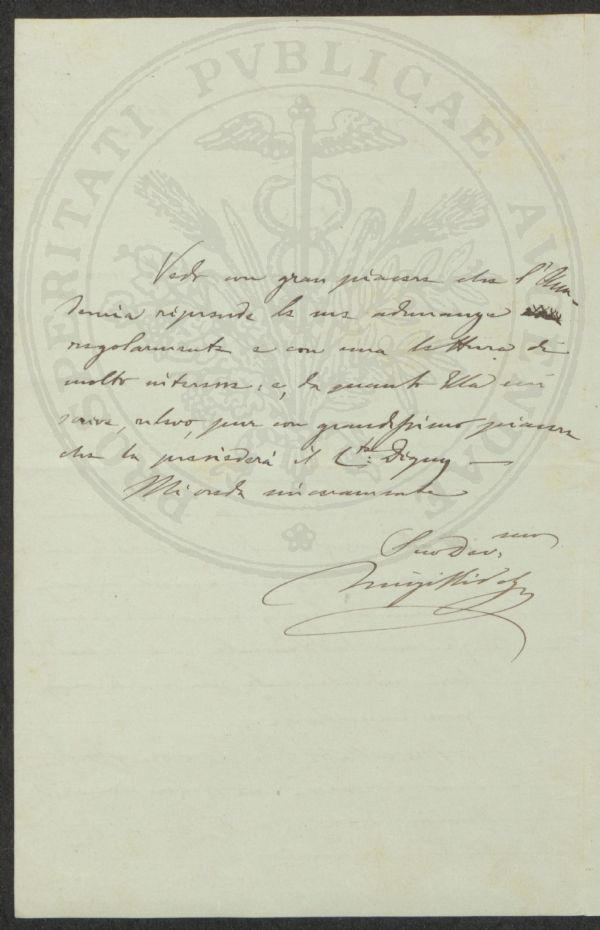 PROSPERITATI PVBLICAE AVGENDAE
Vedo con gran piacere che l'Acca-
demia riprende le sue adunanze
regolarmente e con una lettura di
molto interesse; e, da quanto Ella mi
scrive, rilevo, pur con grandissimo piacere
che la presiederà il C.te Digny —
Mi creda sinceramente
Suo Dev.mo
Luigi